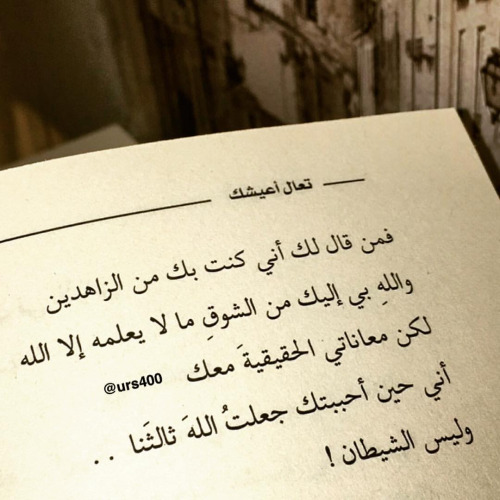 تعال أعيشك
فمن قال لك أني كنت بك من الزاهدين
واللهِ بي إليك من الشوقِ ما لا يعلمه إلا الله
لكن معاناتي الحقيقيةَ معك
@urs400
أني حين أحببتك جعلتُ اللهَ ثالثَنا . .
وليس الشيطان !